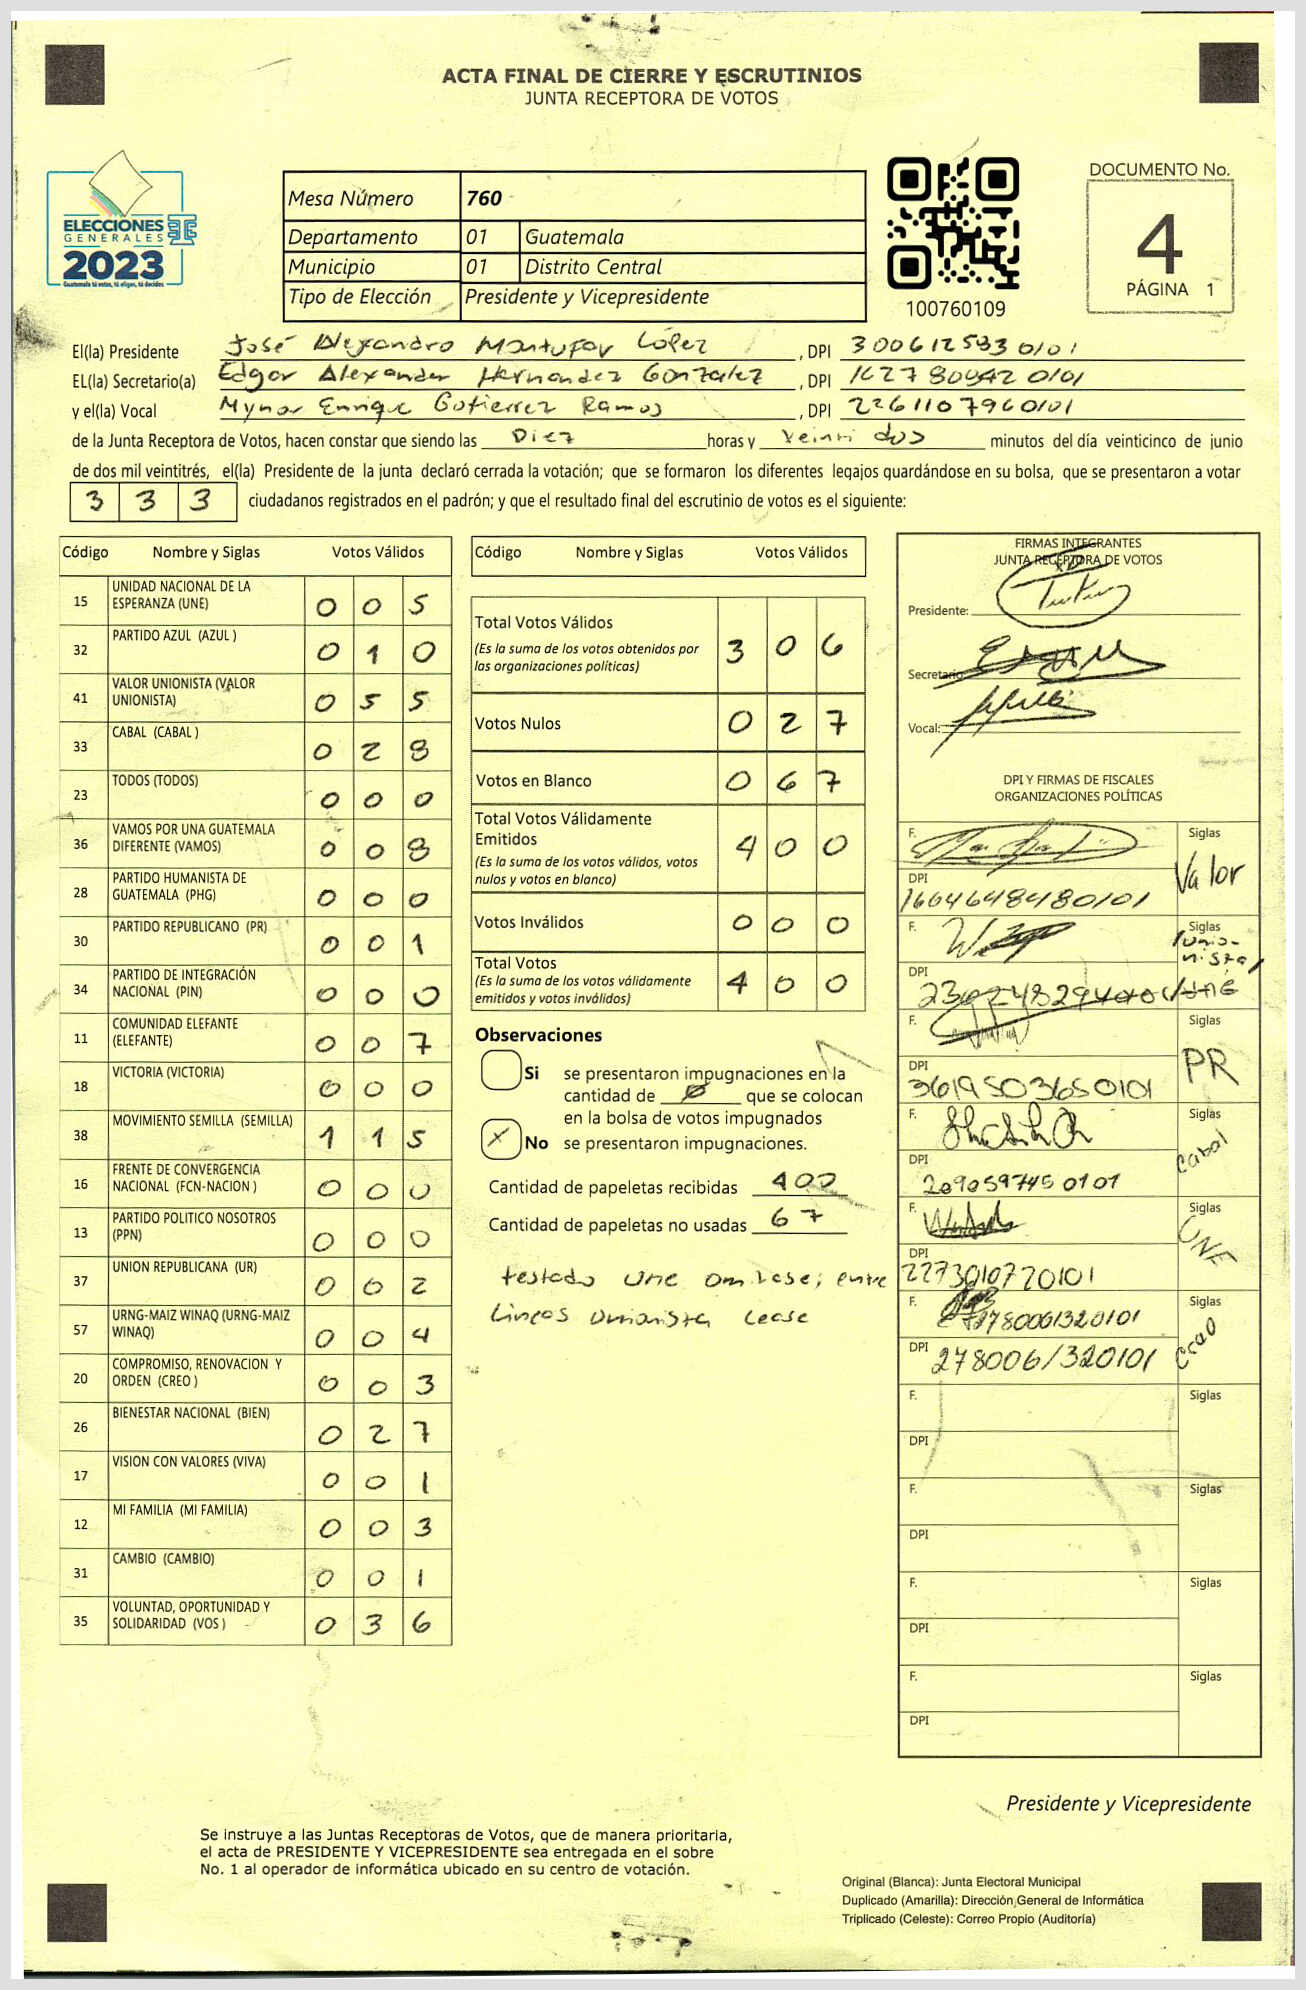 ACTA FINAL DE CIERRE Y ESCRUTINIOS
JUNTA RECEPTORA DE VOTOS
ELECCIONES
GENERALES
2023
Guatemala tú estas, tú eliges, tú decides
Mesa Número 760
Departamento 01 Guatemala
Municipio 01 Distrito Central
Tipo de Elección Presidente y Vicepresidente
100760109
DOCUMENTO No.
4
PÁGINA 1
El(la) Presidente José Alejandro Montufar López, DPI 300612533 0101
EL(la) Secretario(a) Edgar Alexander Hernández González, DPI 162780042 0101
y el(la) Vocal Mynor Enrique Gutierrez Ramos, DPI 2261107960101
de la Junta Receptora de Votos, hacen constar que siendo las Diez horas y veinti dos minutos del día veinticinco de junio
de dos mil veintitrés, el(la) Presidente de la junta declaró cerrada la votación; que se formaron los diferentes legajos guardándose en su bolsa, que se presentaron a votar
3 3 3 ciudadanos registrados en el padrón; y que el resultado final del escrutinio de votos es el siguiente:
Código Nombre y Siglas Votos Válidos
15 UNIDAD NACIONAL DE LA ESPERANZA (UNE) 0 0 5
32 PARTIDO AZUL (AZUL ) 0 1 0
41 VALOR UNIONISTA (VALOR UNIONISTA) 0 5 5
33 CABAL (CABAL ) 0 2 8
23 TODOS (TODOS) 0 0 0
36 VAMOS POR UNA GUATEMALA DIFERENTE (VAMOS) 0 0 8
28 PARTIDO HUMANISTA DE GUATEMALA (PHG) 0 0 0
30 PARTIDO REPUBLICANO (PR) 0 0 1
34 PARTIDO DE INTEGRACIÓN NACIONAL (PIN) 0 0 0
11 COMUNIDAD ELEFANTE (ELEFANTE) 0 0 7
18 VICTORIA (VICTORIA) 0 0 0
38 MOVIMIENTO SEMILLA (SEMILLA) 1 1 5
16 FRENTE DE CONVERGENCIA NACIONAL (FCN-NACION ) 0 0 0
13 PARTIDO POLITICO NOSOTROS (PPN) 0 0 0
37 UNION REPUBLICANA (UR) 0 0 2
57 URNG-MAIZ WINAQ (URNG-MAIZ WINAQ) 0 0 4
20 COMPROMISO, RENOVACION Y ORDEN (CREO ) 0 0 3
26 BIENESTAR NACIONAL (BIEN) 0 2 7
17 VISION CON VALORES (VIVA) 0 0 1
12 MI FAMILIA (MI FAMILIA) 0 0 3
31 CAMBIO (CAMBIO) 0 0 1
35 VOLUNTAD, OPORTUNIDAD Y SOLIDARIDAD (VOS ) 0 3 6
Código Nombre y Siglas Votos Válidos
Total Votos Válidos 3 0 6
(Es la suma de los votos obtenidos por
las organizaciones políticas)
Votos Nulos 0 2 7
Votos en Blanco 0 6 7
Total Votos Válidamente
Emitidos 4 0 0
(Es la suma de los votos válidos, votos
nulos y votos en blanco)
Votos Inválidos 0 0 0
Total Votos 4 0 0
(Es la suma de los votos válidamente
emitidos y votos inválidos)
Observaciones
Si se presentaron impugnaciones en la
cantidad de 0 que se colocan
en la bolsa de votos impugnados
X No se presentaron impugnaciones.
Cantidad de papeletas recibidas 400
Cantidad de papeletas no usadas 67
testado une omitase; entre
lineas unionista lease
FIRMAS INTEGRANTES
JUNTA RECEPTORA DE VOTOS
Presidente:
Secretario:
Vocal:
DPI Y FIRMAS DE FISCALES
ORGANIZACIONES POLÍTICAS
F. Siglas Valor
DPI 1664648480101
F. Siglas Unionista
DPI
F. Siglas PR
DPI 3619503650101
F. Siglas Cabal
DPI 2090597450101
F. Siglas UNE
DPI 2273010720101
F. Siglas Creo
DPI 2780061320101
F. Siglas
DPI
F. Siglas
DPI
F. Siglas
DPI
F. Siglas
DPI
Presidente y Vicepresidente
Se instruye a las Juntas Receptoras de Votos, que de manera prioritaria,
el acta de PRESIDENTE Y VICEPRESIDENTE sea entregada en el sobre
No. 1 al operador de informática ubicado en su centro de votación.
Original (Blanca): Junta Electoral Municipal
Duplicado (Amarilla): Dirección General de Informática
Triplicado (Celeste): Correo Propio (Auditoría)